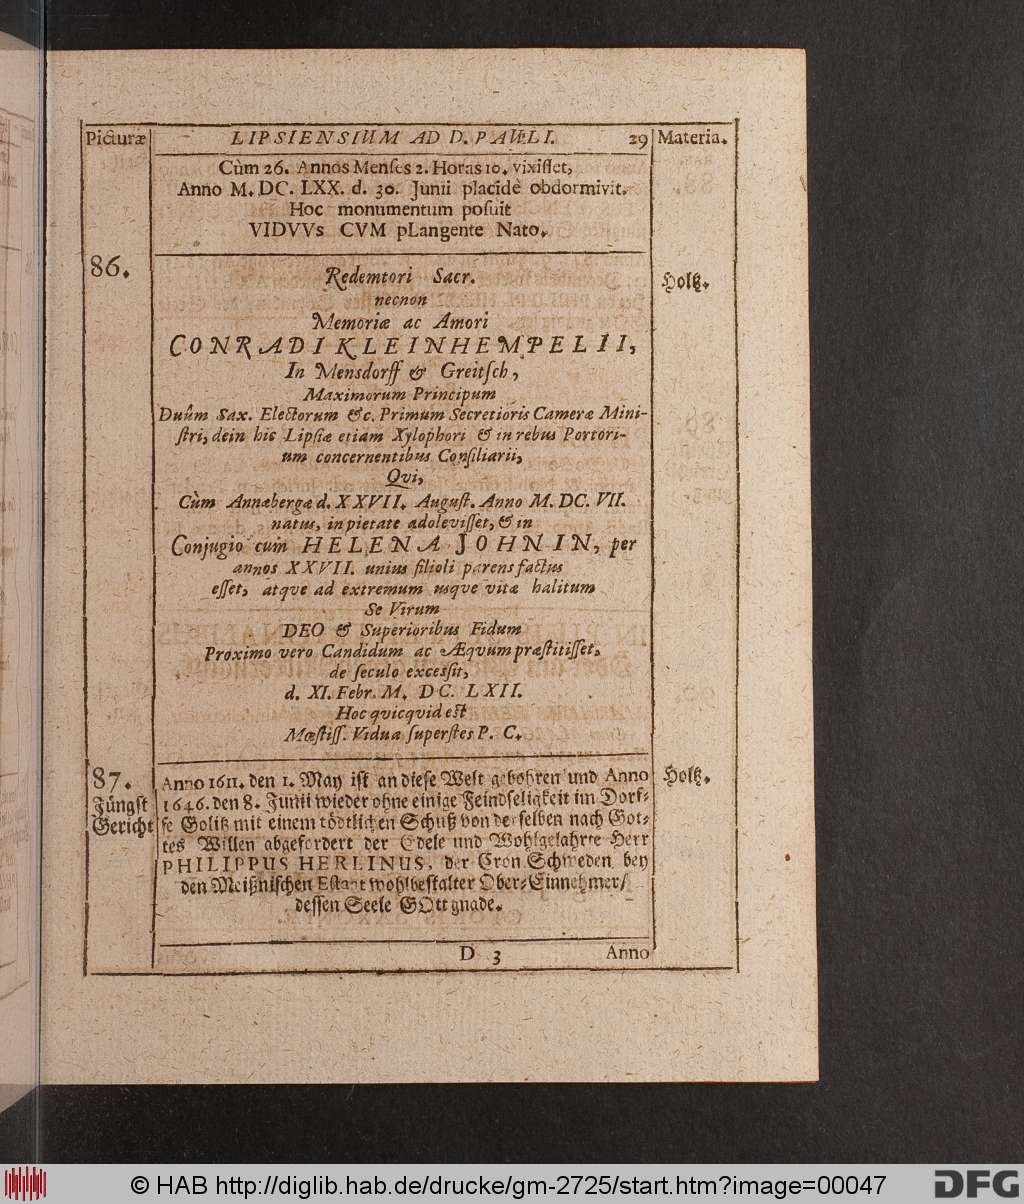 Picturæ LIPSIENSIUM AD D. PAULI. 29 Materia.
Cùm 26. Annos Menses 2. Horas 10. vixisset,
Anno M. DC. LXX. d. 30. Junii placidè obdormivit.
Hoc monumentum posuit
VIDVVs CVM pLangente Nato.
86. Redemtori Sacr. Holtz.
necnon
Memoriæ ac Amori
CONRADI KLEINHEMPELII,
In Mensdorff & Greitsch,
Maximorum Principum
Duûm Sax. Electorum &c. Primum Secretioris Cameræ Mini-
stri, dein hic Lipsiæ etiam Xylophori & in rebus Portori-
um concernentibus Consiliarii,
Qvi,
Cùm Annæbergæ d. XXVII. August. Anno M. DC. VII.
natus, in pietate adolevisset, & in
Conjugio cum HELENA JOHNIN, per
annos XXVII. unius filioli parens factus
esset, atqve ad extremum usqve vitæ halitum
Se Virum
DEO & Superioribus Fidum
Proximo vero Candidum ac Æqvum præstitisset,
de seculo excessit,
d. XI. Febr. M. DC. LXII.
Hoc qvicqvid est
Mœstiss. Vidua superstes P. C.
87. Anno 1611. den 1. May ist an diese Welt gebohren und Anno Holtz.
Jüngst 1646. den 8. Junii wieder ohne einige Feindseligkeit im Dorf-
Gericht fe Golitz mit einem tödtlichen Schuß von derselben nach Got-
tes Willen abgefordert der Edele und Wohlgelahrte Herr
PHILIPPUS HERLINUS, der Cron Schweden bey
den Meißnischen Estaat wohlbestalter Ober-Einnehmer/
dessen Seele GOtt gnade.
D 3 Anno
© HAB http://diglib.hab.de/drucke/gm-2725/start.htm?image=00047
DFG